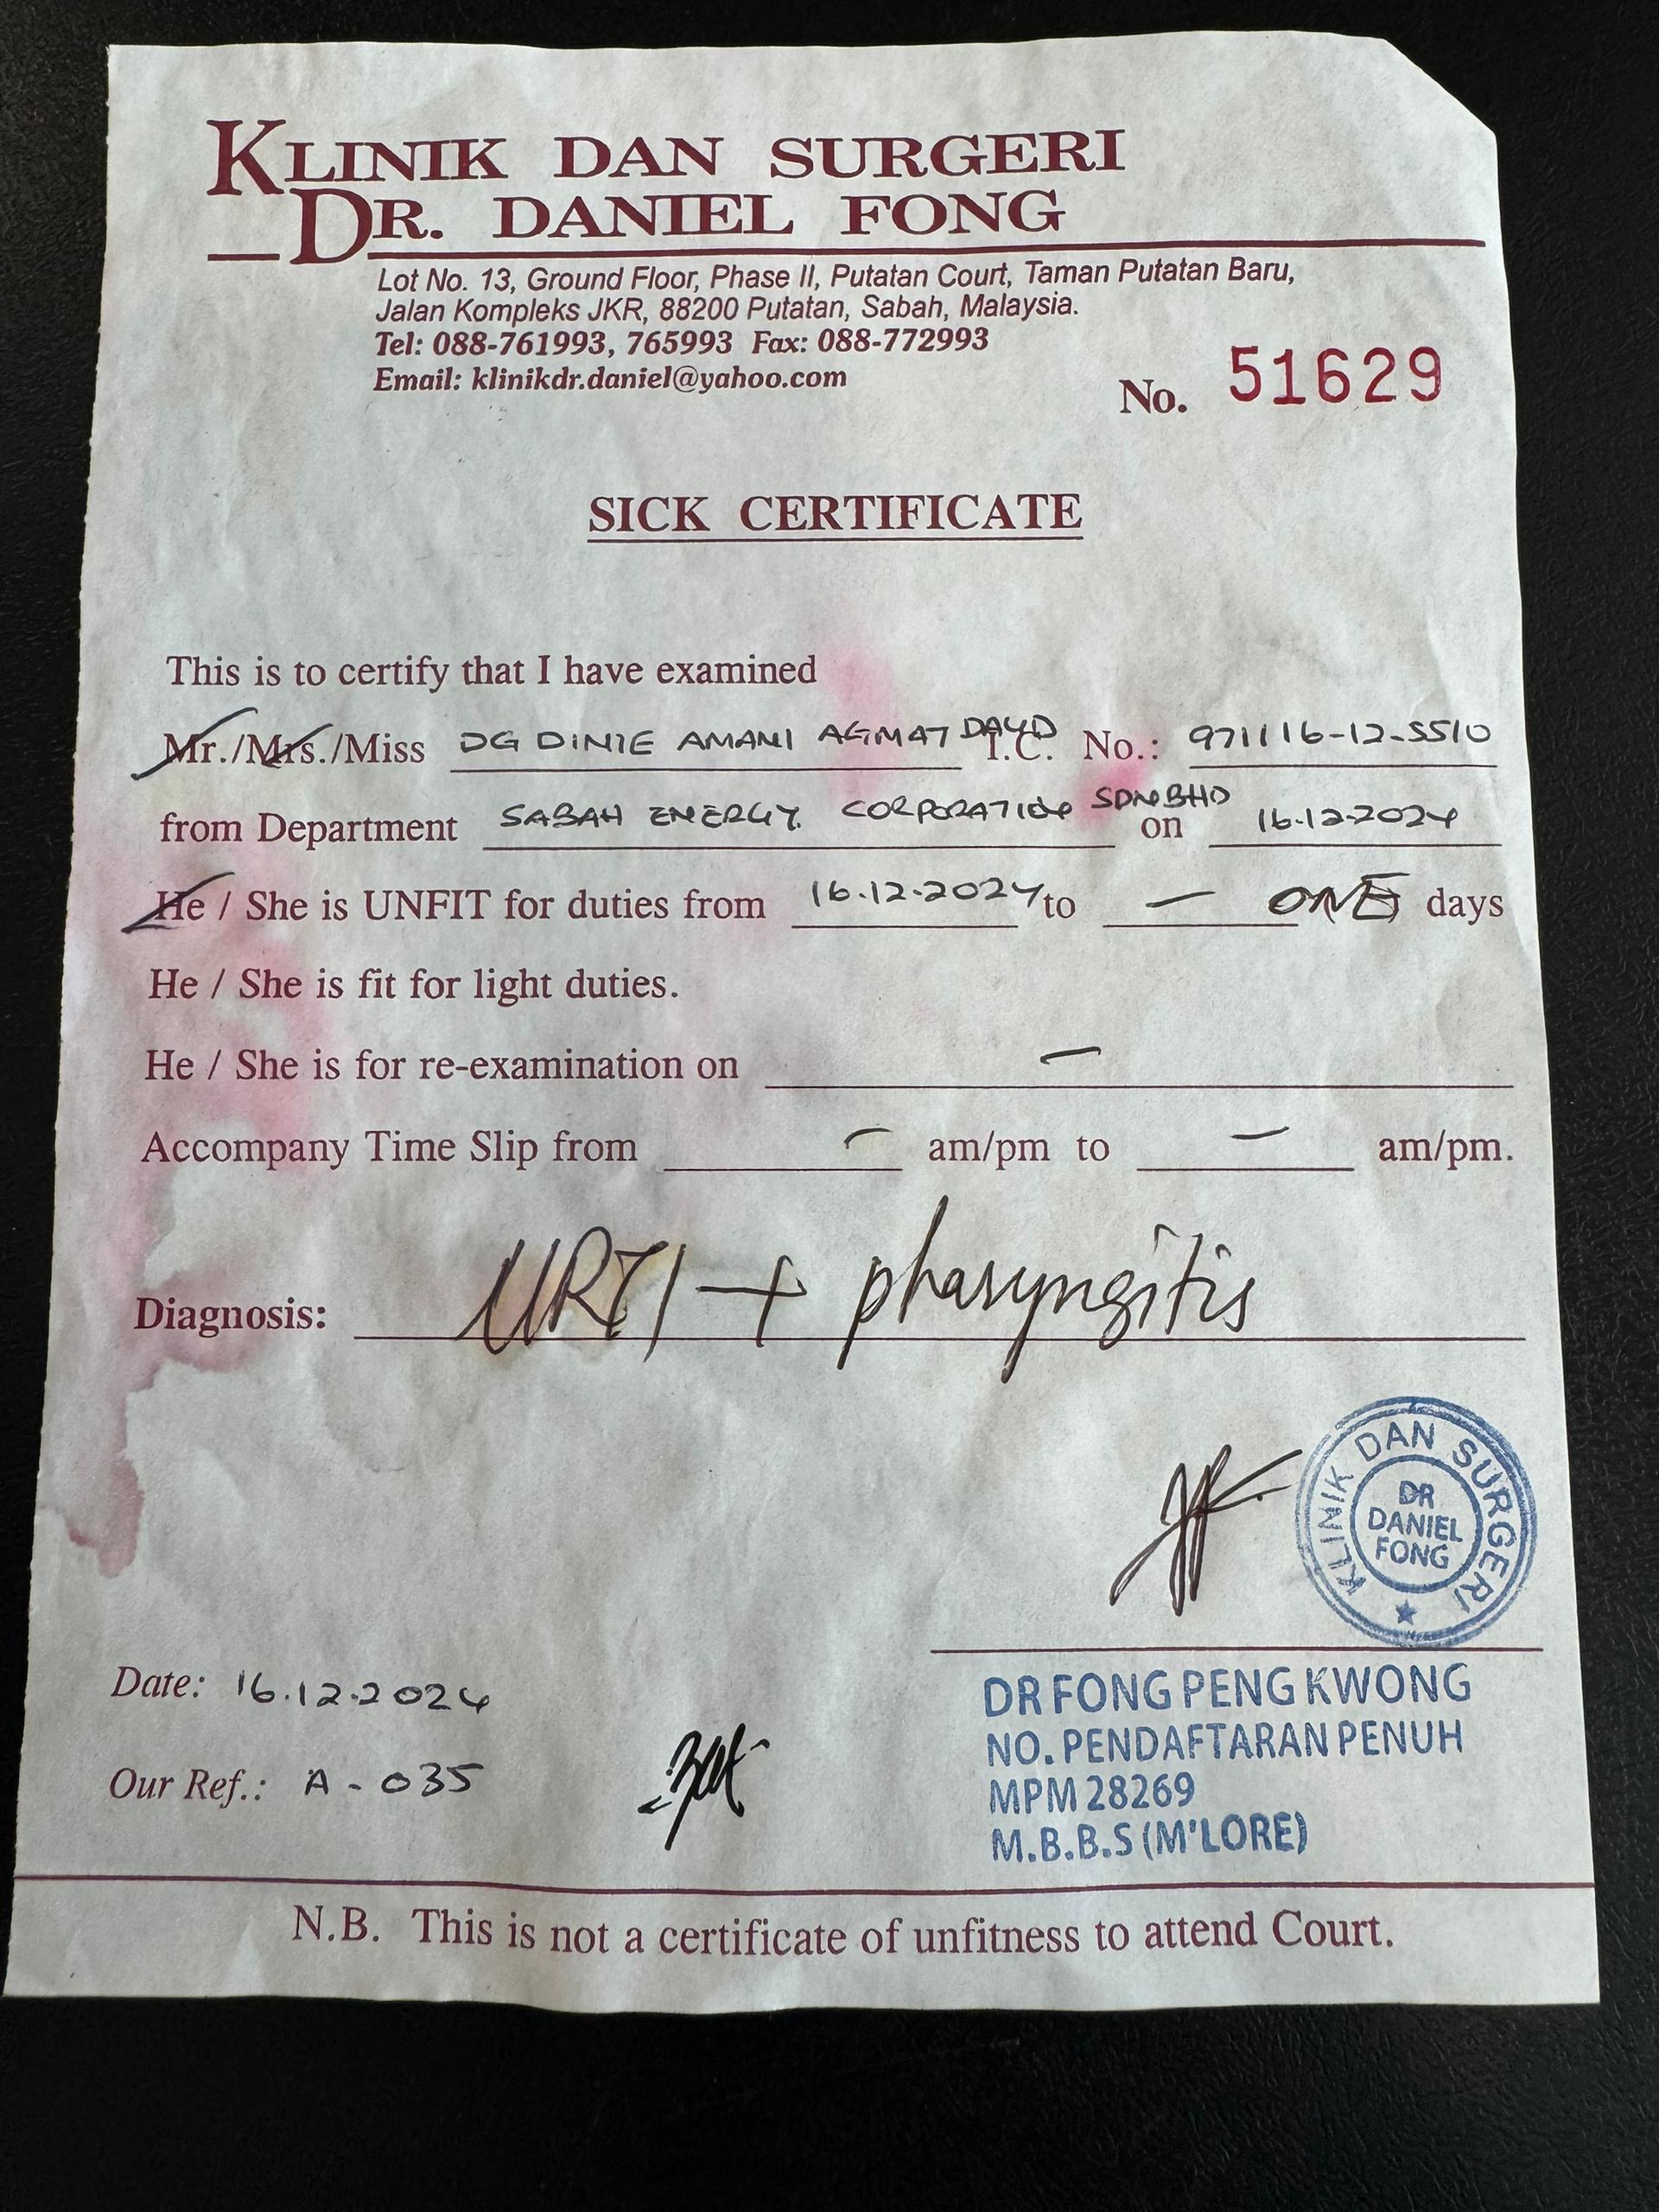 KLINIK DAN SURGERI
DR. DANIEL FONG
Lot No. 13, Ground Floor, Phase II, Putatan Court, Taman Putatan Baru,
Jalan Kompleks JKR, 88200 Putatan, Sabah, Malaysia.
Tel: 088-761993, 765993 Fax: 088-772993
Email: klinikdr.daniel@yahoo.com
No. 51629
SICK CERTIFICATE
This is to certify that I have examined
Mr./Mrs./Miss DG DINIE AMANI AGMAT DAUD I.C. No.: 971116-12-5510
from Department SABAH ENERGY CORPORATION SDN BHD on 16.12.2024
He / She is UNFIT for duties from 16.12.2024 to — ONE days
He / She is fit for light duties.
He / She is for re-examination on —
Accompany Time Slip from — am/pm to — am/pm.
Diagnosis: URTI + pharyngitis
KLINIK DAN SURGERI
DR
DANIEL
FONG
Date: 16.12.2024
Our Ref.: A - 035
DR FONG PENG KWONG
NO. PENDAFTARAN PENUH
MPM 28269
M.B.B.S (M'LORE)
N.B. This is not a certificate of unfitness to attend Court.